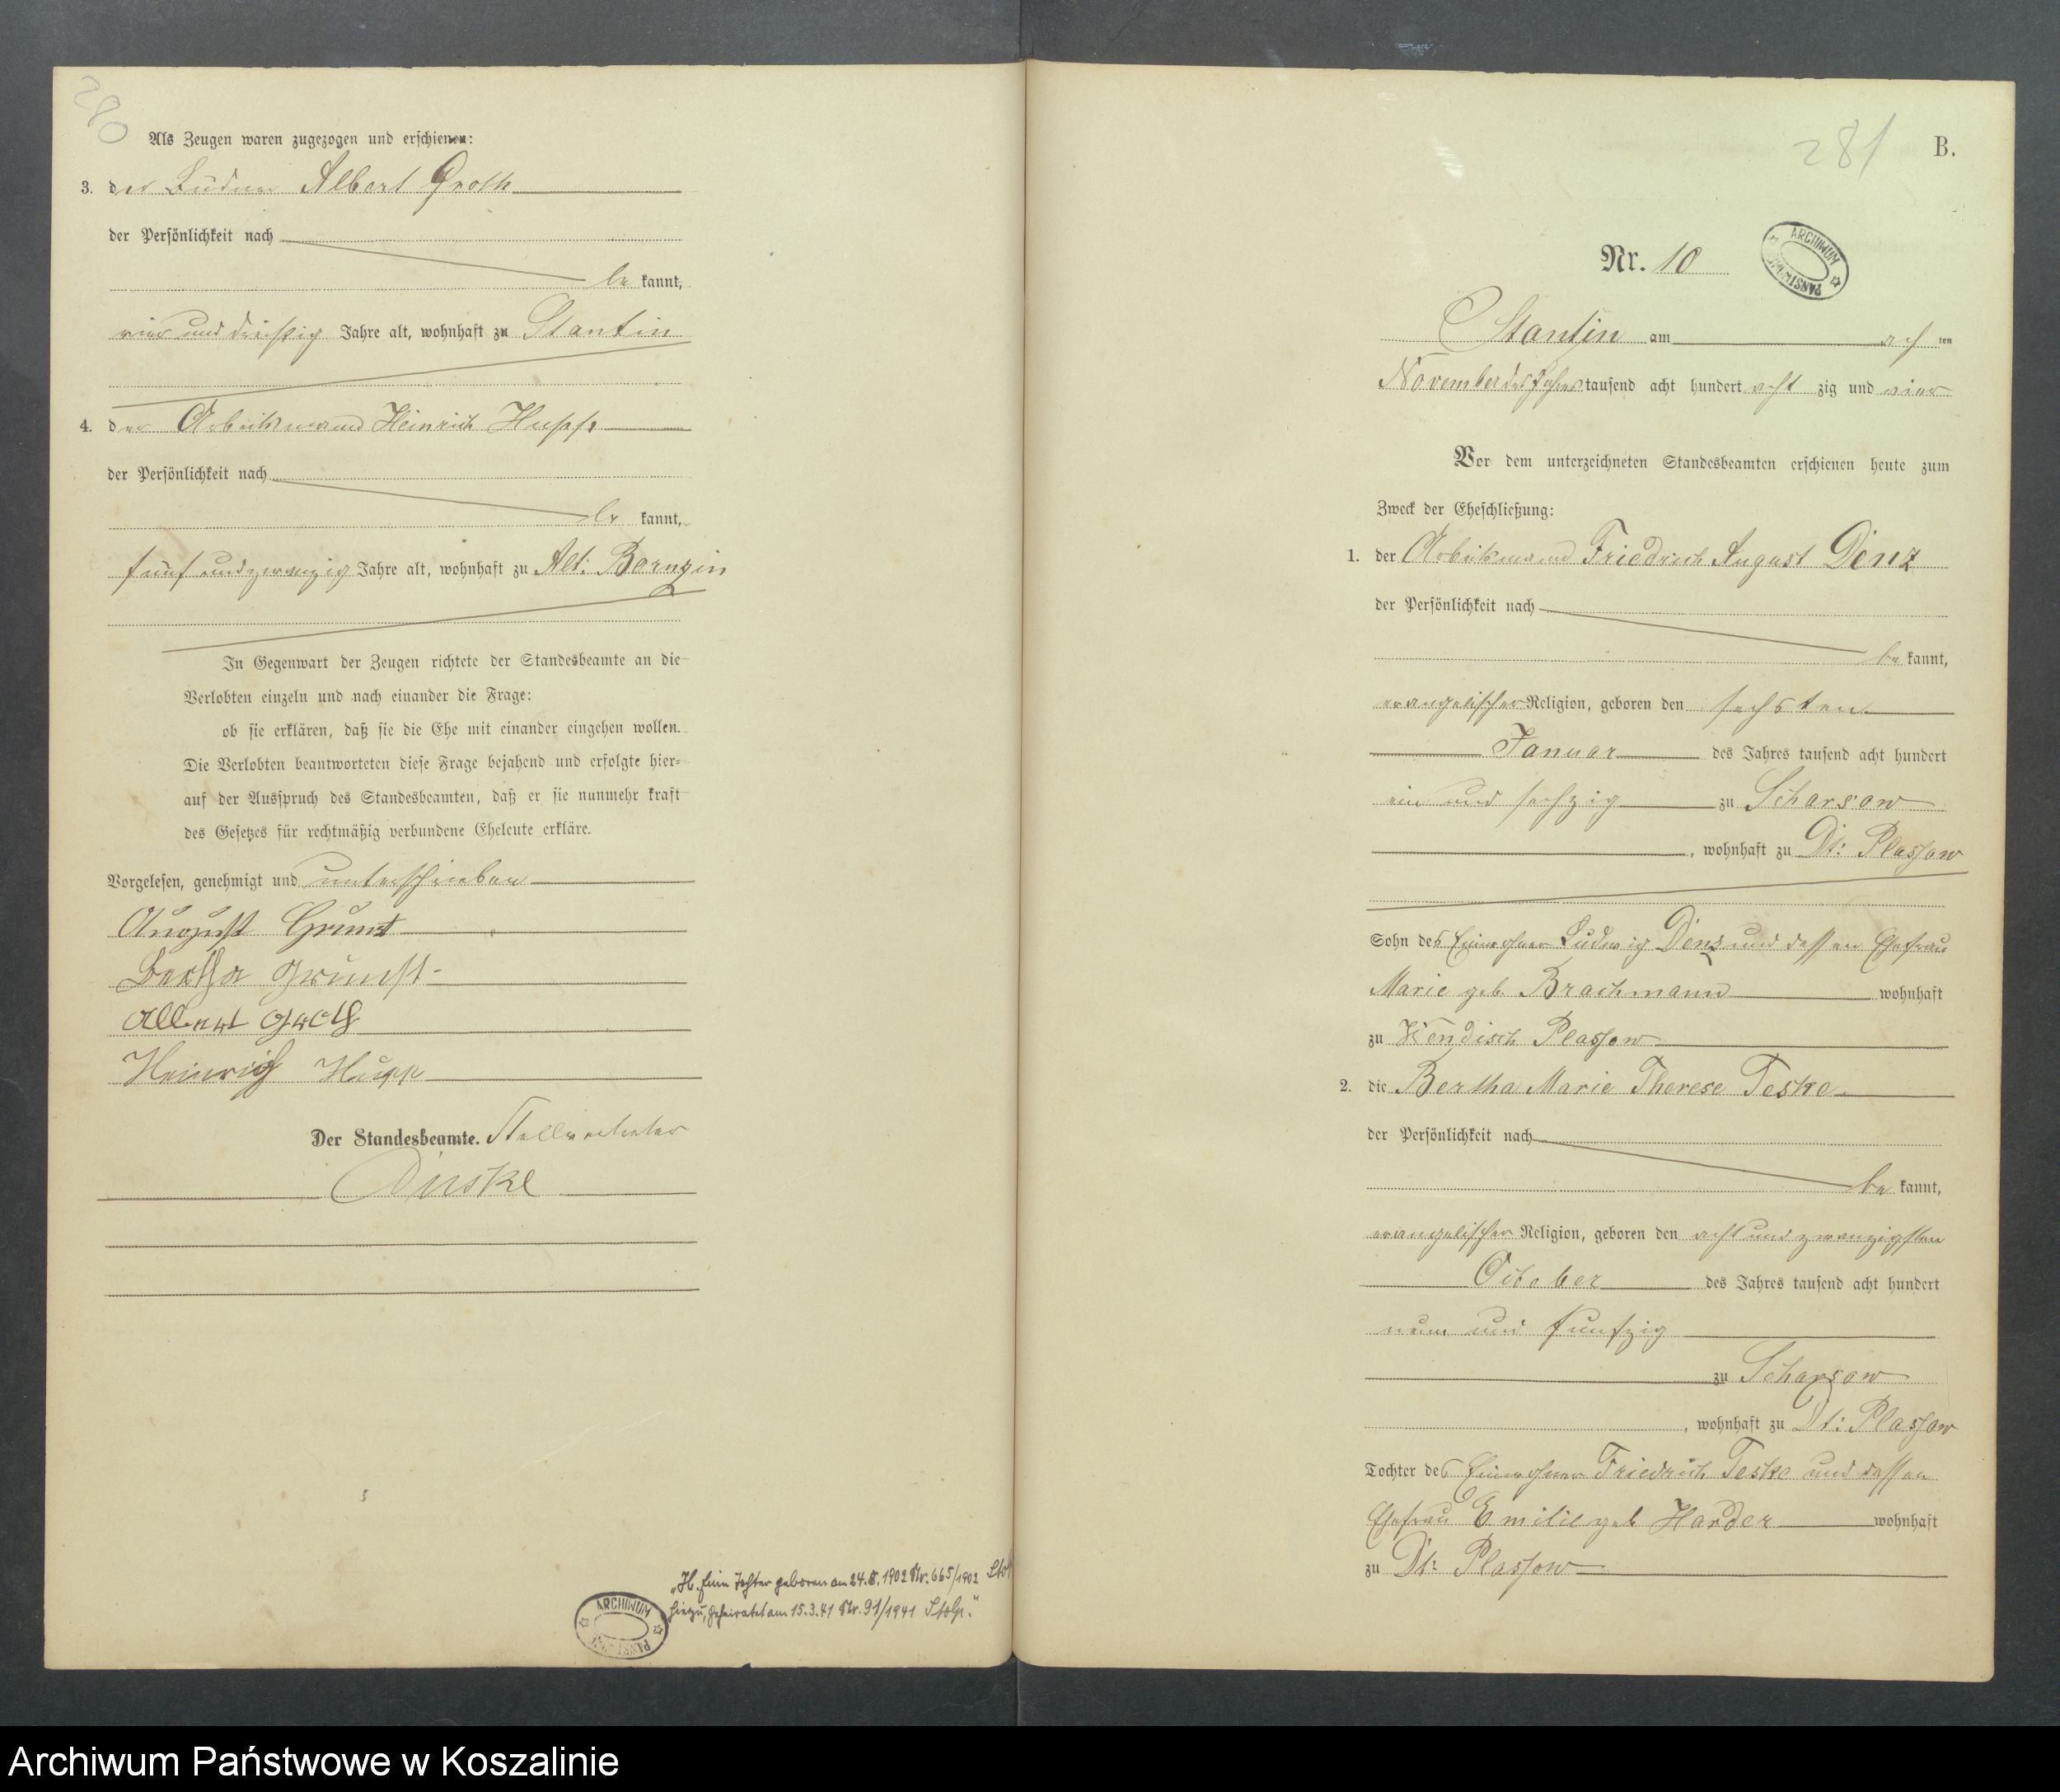 280
Als Zeugen waren zugezogen und erschienen:
3. der Büdner Albert Groth
der Persönlichkeit nach
be kannt,
vier und dreißig Jahre alt, wohnhaft zu Stantin
4. der Arbeitsmann Heinrich Hupp
der Persönlichkeit nach
be kannt,
fünf und zwanzig Jahre alt, wohnhaft zu Alt: Bornzin
In Gegenwart der Zeugen richtete der Standesbeamte an die
Verlobten einzeln und nach einander die Frage:
ob sie erklären, daß sie die Ehe mit einander eingehen wollen.
Die Verlobten beantworteten diese Frage bejahend und erfolgte hier-
auf der Ausspruch des Standesbeamten, daß er sie nunmehr kraft
des Gesetzes für rechtmäßig verbundene Eheleute erkläre.
Vorgelesen, genehmigt und unterschrieben
August Grunst
Bertha Grunst
Albert Groth
Heinrich Hupp
Der Standesbeamte. Stellvertreter
Duske
„H. Eine Tochter geboren am 24.8.1902 Nr. 665/1902 Stolp
hierzu, geheiratet am 15.3.41 Nr. 91/1941 Stolp."
ARCHIWUM PAŃSTWOWE
281
B.
Nr. 10
ARCHIWUM PAŃSTWOWE
Stantin am ach ten
November des Jahres tausend acht hundert acht zig und vier
Vor dem unterzeichneten Standesbeamten erschienen heute zum
Zweck der Eheschließung:
1. der Arbeitsmann Friedrich August Denz
der Persönlichkeit nach
be kannt,
evangelischer Religion, geboren den sechsten
Januar des Jahres tausend acht hundert
ein und sechzig zu Scharsow
, wohnhaft zu Dt: Plassow
Sohn des Einwohner Ludwig Denz und dessen Ehefrau
Marie geb. Brachmann wohnhaft
zu Wendisch Plassow
2. die Bertha Marie Therese Teske
der Persönlichkeit nach
be kannt,
evangelischer Religion, geboren den acht und zwanzigsten
October des Jahres tausend acht hundert
neun und funfzig
zu Scharsow
, wohnhaft zu Dt: Plassow
Tochter des Einwohner Friedrich Teske und dessen
Ehefrau Emilie geb Harder wohnhaft
zu Dt: Plassow
Archiwum Państwowe w Koszalinie